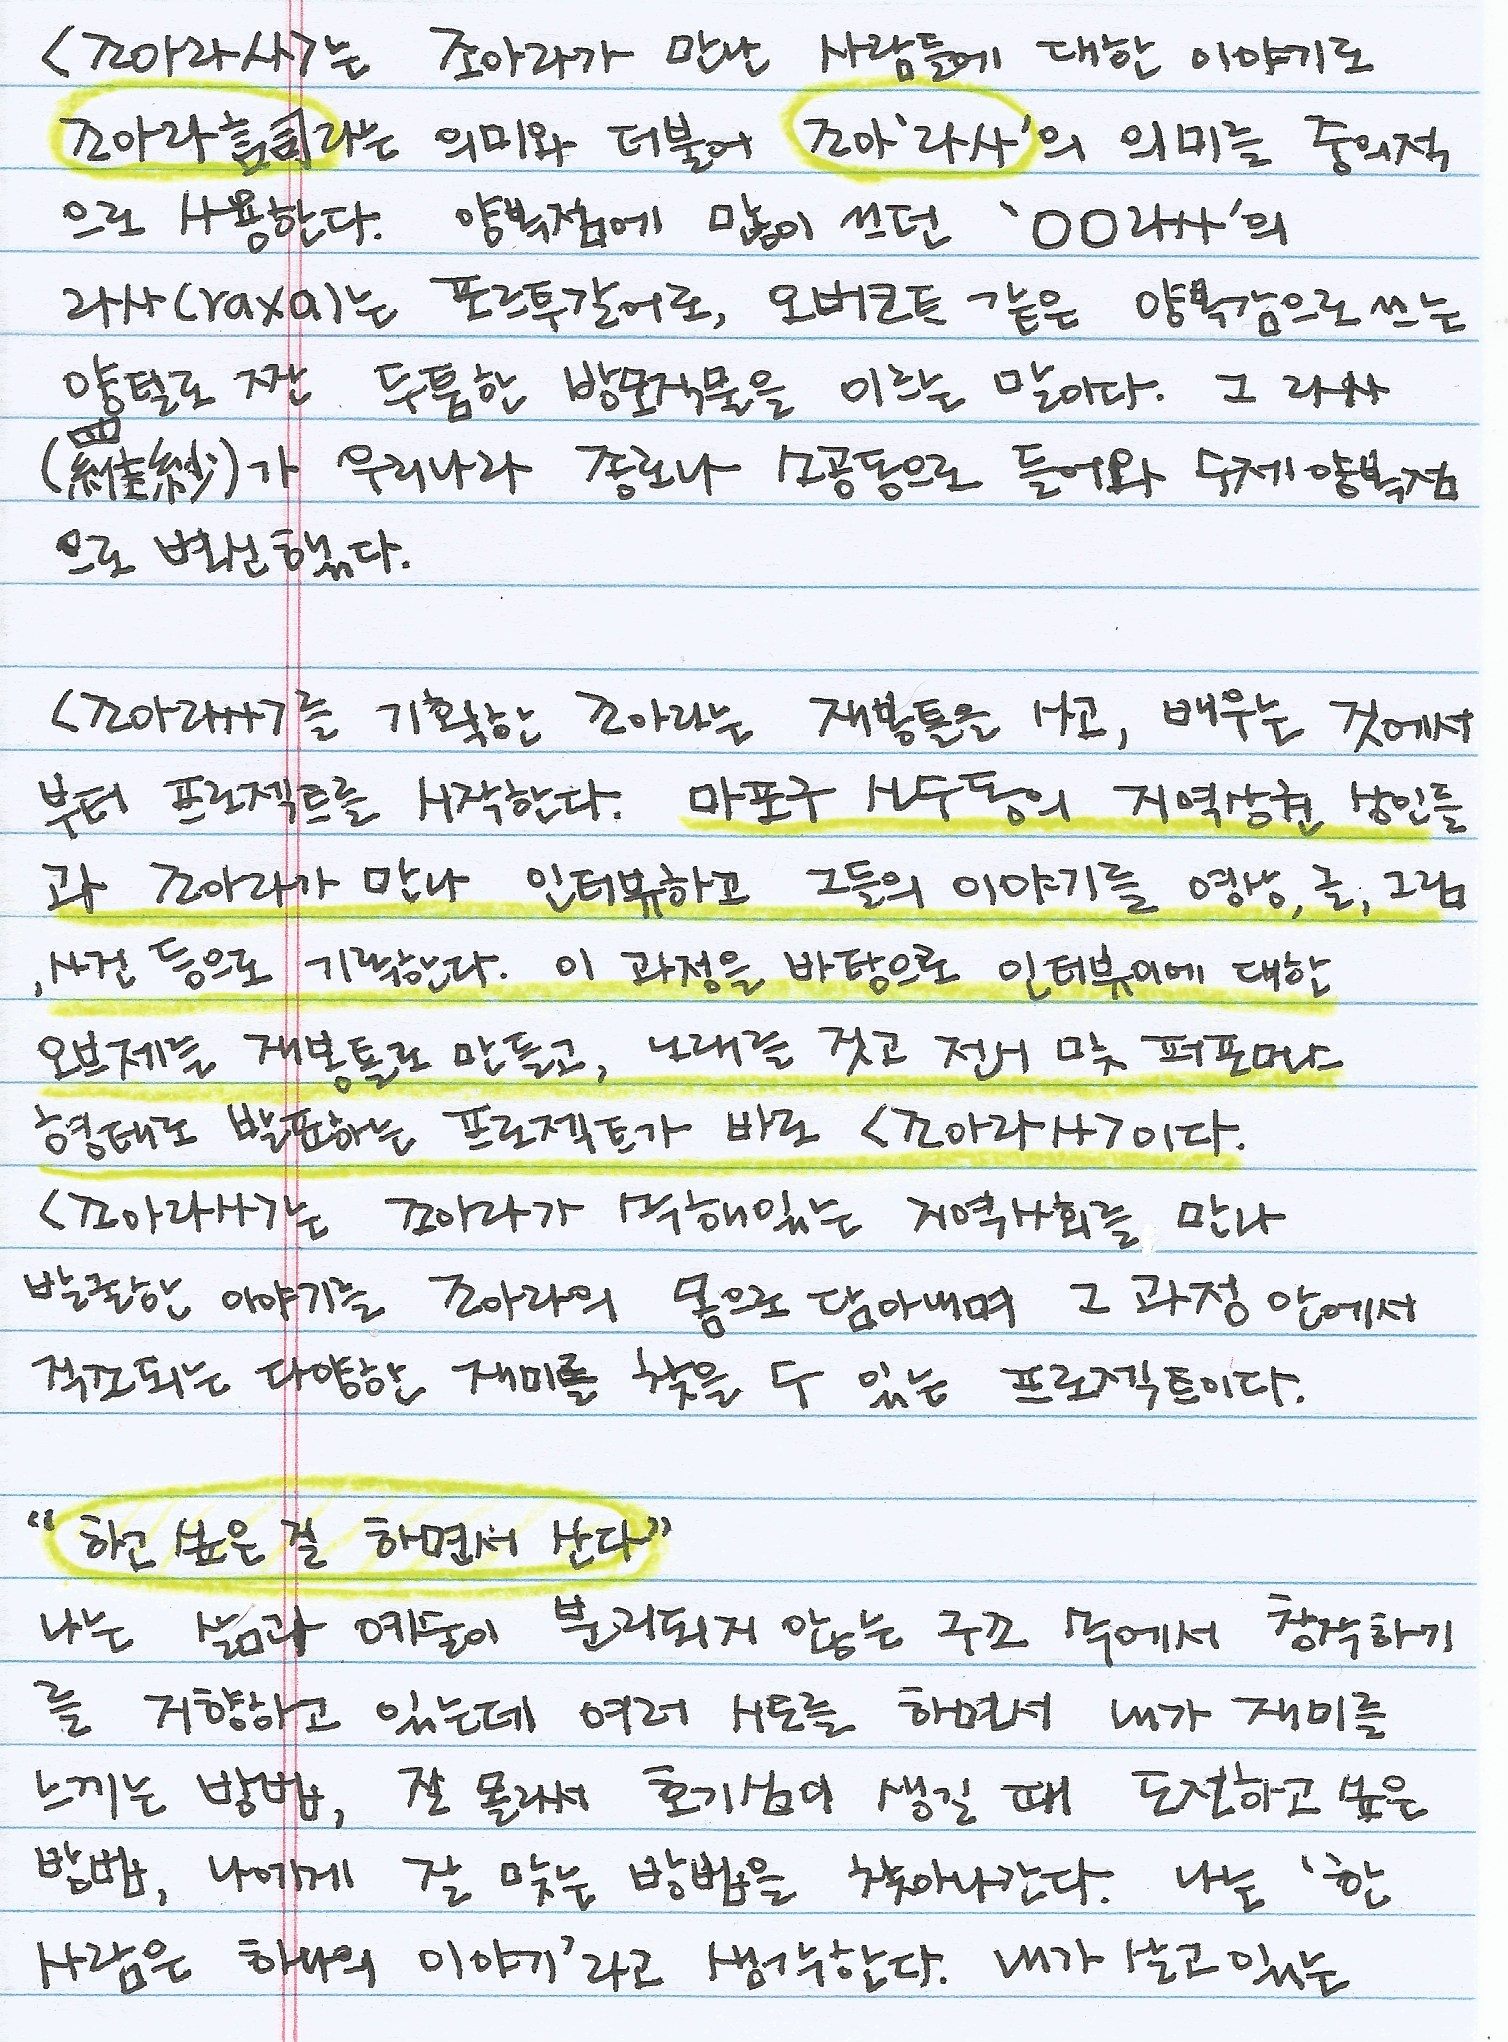 <조아라사>는 조아라가 만난 사람들에 대한 이야기로
조아라詞라는 의미와 더불어 조아'라사'의 의미를 중의적
으로 사용한다. 양복점에 많이 쓰던 'OO라사'의
라사(raxa)는 포르투갈어로, 오버코트 같은 양복감으로 쓰는
양털로 짠 두툼한 방모직물을 이르는 말이다. 그 라사
(羅紗)가 우리나라 종로나 소공동으로 들어와 수제양복점
으로 변신했다.
<조아라사>를 기획한 조아라는 재봉틀을 사고, 배우는 것에서
부터 프로젝트를 시작한다. 마포구 신수동의 지역상권 상인들
과 조아라가 만나 인터뷰하고 그들의 이야기를 영상, 글, 그림
,사진 등으로 기록한다. 이 과정을 바탕으로 인터뷰이에 대한
오브제를 재봉틀로 만들고, 노래를 짓고 전시 및 퍼포먼스
형태로 발표하는 프로젝트가 바로 <조아라사>이다.
<조아라사>는 조아라가 속해있는 지역사회를 만나
발굴한 이야기를 조아라의 몸으로 담아내며 그 과정 안에서
직조되는 다양한 재미를 찾을 수 있는 프로젝트이다.
"하고 싶은 걸 하면서 산다"
나는 삶과 예술이 분리되지 않는 구조 속에서 창작하기
를 지향하고 있는데 여러 시도를 하면서 내가 재미를
느끼는 방법, 잘 몰라서 호기심이 생길 때 도전하고 싶은
방법, 나에게 잘 맞는 방법을 찾아나간다. 나는 '한
사람은 하나의 이야기'라고 생각한다. 내가 살고 있는